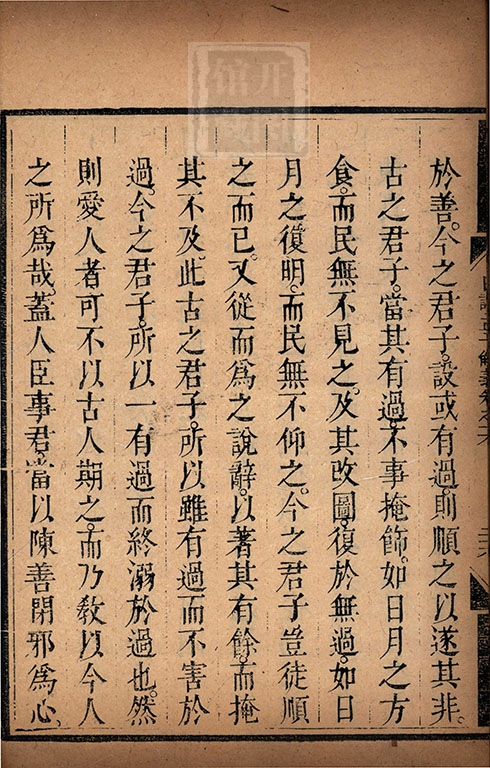 於善。今之君子。設或有過。則順之以遂其非。
古之君子。當其有過。不事掩飾。如日月之方
食。而民無不見之。及其改圖。復於無過。如日
月之復明。而民無不仰之。今之君子豈徒順
之而已。又從而爲之說辭。以著其有餘。而掩
其不及。此古之君子。所以雖有過而不害於
過。今之君子。所以一有過而終溺於過也。然
則愛人者可不以古人期之。而乃敎以今人
之所爲哉。蓋人臣事君。當以陳善閉邪爲心。